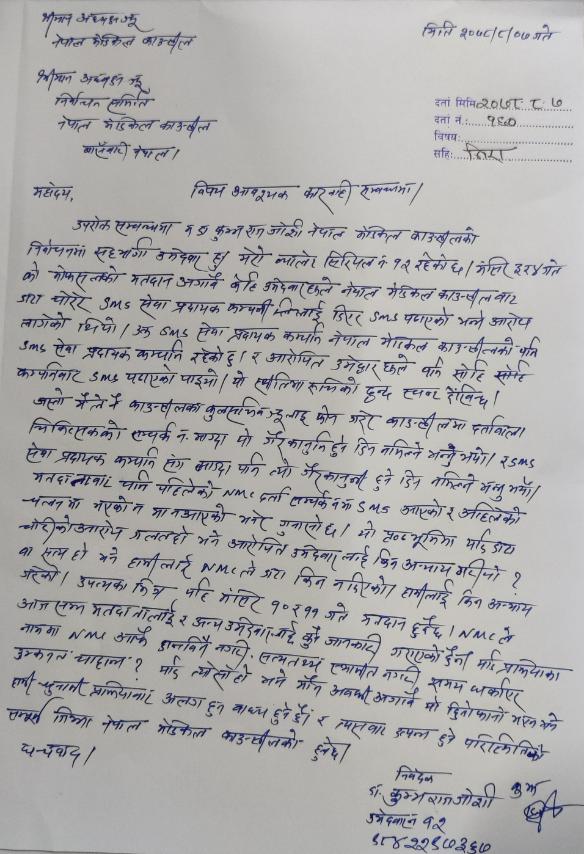 श्रीमान अध्यक्ष ज्यू
नेपाल मेडिकल काउन्सील
मिति २०७८/८/०७ गते
श्रीमान अध्यक्ष ज्यू
निर्वाचन समिति
नेपाल मेडिकल काउन्सील
बाँसबारी नेपाल।
दर्ता मिति २०७८.८.७
दर्ता नं.: १६०
विषय:
सहि:
महोदय,
विषय आवश्यक कारवाही सम्बन्धमा।
उपरोक्त सम्बन्धमा म डा कुम्भ राज जोशी नेपाल मेडिकल काउन्सीलको
निर्वाचनमा सहभागी उमेदवार हु। मेरो ब्यालेट सिरियल नं १२ रहेको छ। मंसिर ३ र ४ गते
को मोफसलको मतदान अगावै केहि उमेदवारहरुले नेपाल मेडिकल काउन्सील बाट
डाटा चोरेर SMS सेवा प्रदायक कम्पनी लाई दिएर SMS पठाएको भन्ने आरोप
लागेको थियो। उक्त SMS सेवा प्रदायक कम्पनि नेपाल मेडिकल काउन्सीलको पनि
SMS सेवा प्रदायक कम्पनि रहेको छ। र आरोपित उमेद्वारहरुले पनि सोहि
कम्पनिबाट SMS पठाएको पाइयो। यो स्थितिमा रूचिको द्वन्द स्पष्ट देखिन्छ।
जस्तो मैले नै काउन्सीलका ज्यूलाई फोन गरेर काउन्सीलमा दर्तावाला
चिकित्सकको सम्पर्क नं. माग्दा यो गैरकानुनि हुने दिन नमिल्ने भन्नु भयो। र SMS
सेवा प्रदायक कम्पनि संग माग्दा पनि त्यो गैरकानुनी हुने दिन नमिल्ने भन्नु भयो।
मतदाताबाट पनि पहिलेको NMC दर्ता सम्पर्क नं मा SMS आएको र अहिलेको
चलनमा भएको नं मा नआएको भनेर गुनासो छ। यो पृष्ठभूमिमा यदि डाटा
चोरीको आरोप गलत हो भने आरोपित उमेदवार लाई किन अन्याय गरियो ?
वा सत्य हो भने हामीलाई NMC ले डाटा किन नदिएको। हामीलाई किन अन्याय
गरेको। उपत्यका भित्र यहि मंसिर १० र ११ गते मतदान हुदैछ। NMC ले
आज सम्म मतदातालाई र अन्य उमेदवारलाई कुनै जानकारी गराएको छैन। यदि प्रक्रियाका
नाममा NMC आफै छानविन नगरी, सत्यतथ्य स्थापित नगरी समय घर्काएर
उम्कन चाहान्छ ? यदि त्यसो हो भने मौन अवधी अगावै यो
हामी चुनावी प्रक्रियाबाट अलग हुन बाध्य हुनेछौं र त्यसबाट उत्पन्न हुने परिस्थितिको
सम्पूर्ण जिम्मा नेपाल मेडिकल काउन्सीलको हुनेछ।
धन्यवाद।
निवेदक
डा. कुम्भ राज जोशी
उमेदवार नं १२
९८४२२९७३६७